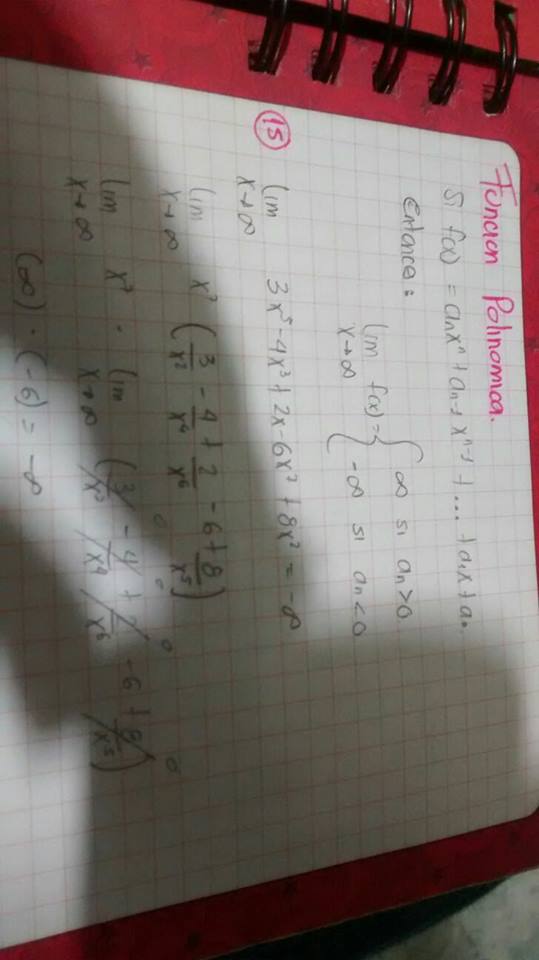 Funcion Polinomica.
Si f(x) = aₙxⁿ + aₙ₋₁ xⁿ⁻¹ + ... + a₁x + a₀
Entonces:
lim f(x) = { ∞ si aₙ > 0
x→∞ -∞ si aₙ < 0
15
lim 3x⁵ - 4x³ + 2x - 6x⁷ + 8x² = -∞
x→∞
lim x⁷ (3/x² - 4/x⁴ + 2/x⁶ - 6 + 8/x⁵)
x→∞
lim x⁷ · lim (3/x² - 4/x⁴ + 2/x⁶ - 6 + 8/x⁵)
x→∞ x→∞ 0 0 0 0
(∞) · (-6) = -∞